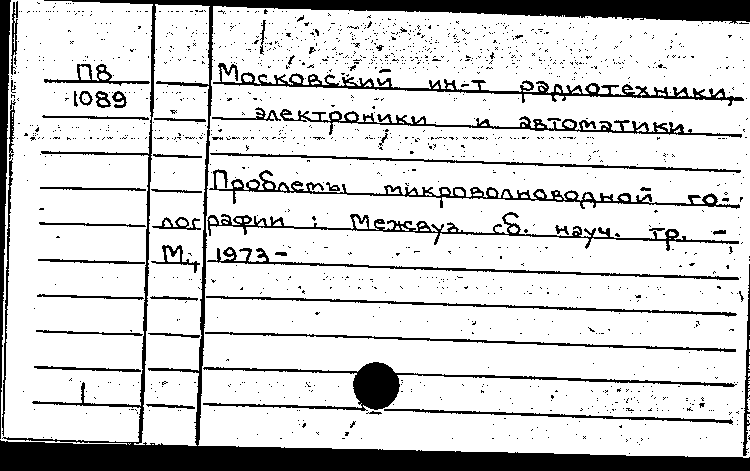 П8
1089
Московский ин-т радиотехники,
электроники и автоматики.
Проблемы микроволноводной го-
лографии : Межвуз. сб. науч. тр. –
М., 1973 –